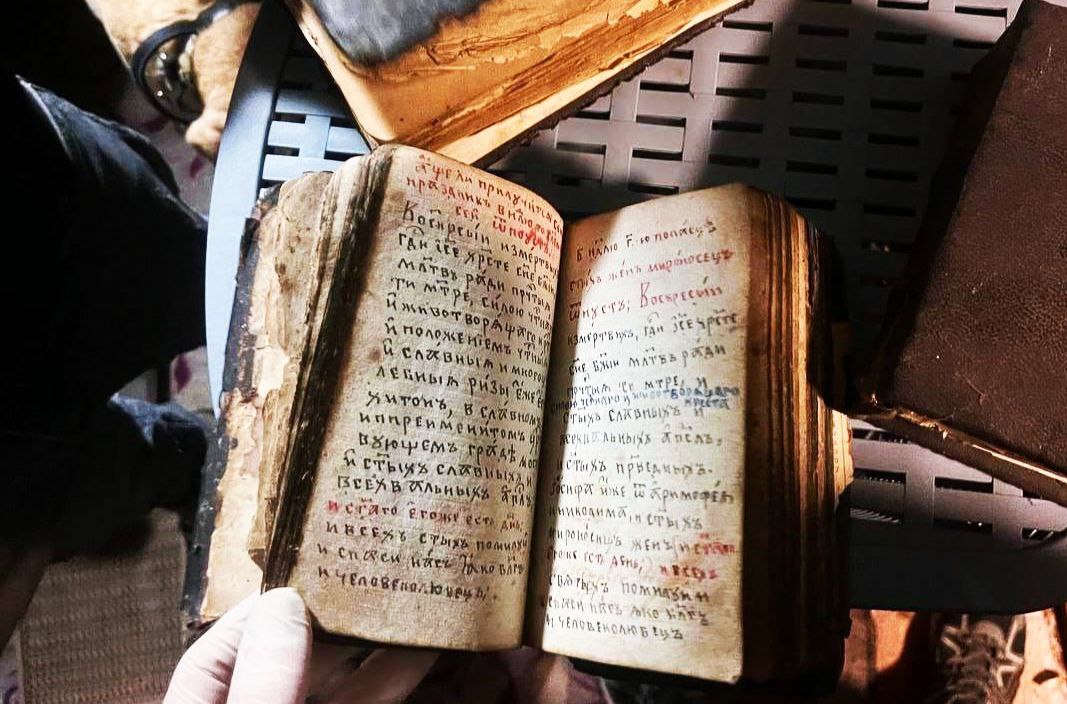 аще ли прилучится
праздникъ в нлю
сей
Воскресыи измертвы
гди їсе хрсте сне бжи
млтвъ ради прчтыѧ
ти мтре, силою чтна
и животворѧщаго
и положенїемъ чтныѧ
и славныѧ и много
лебныѧ ризы еже
хитонъ, в славно
и преименитомъ
вующемъ градѣ мос
и стыхъ славныхъ и
всехвалныхъ апл
и стаго егоже есть днь,
и всехъ стыхъ помилуи
и спаси насъ ꙗко блгъ
и человеколюбецъ.
в нлю г҃ ю по пасцѣ
стыхъ женъ мироносецъ
ѿпустъ; Воскресыи
измертвыхъ, гди їсе хрсте
сне бжїи млтвъ ради
прчтыѧ ти мтре, и
животворѧщаго
креста
стыхъ славныхъ и
всехвалныхъ апслъ,
и стыхъ првдныхъ.
иѡсифа иже ѿ аримофеи
и никодима, и стыхъ
мироносицъ женъ и стаго
егоже есть день, и всехъ
свѧтыхъ помилуи и
спаси насъ ꙗко блгъ
и человеколюбецъ